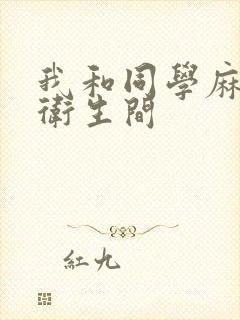 我和同學麻
衛生間
紅九